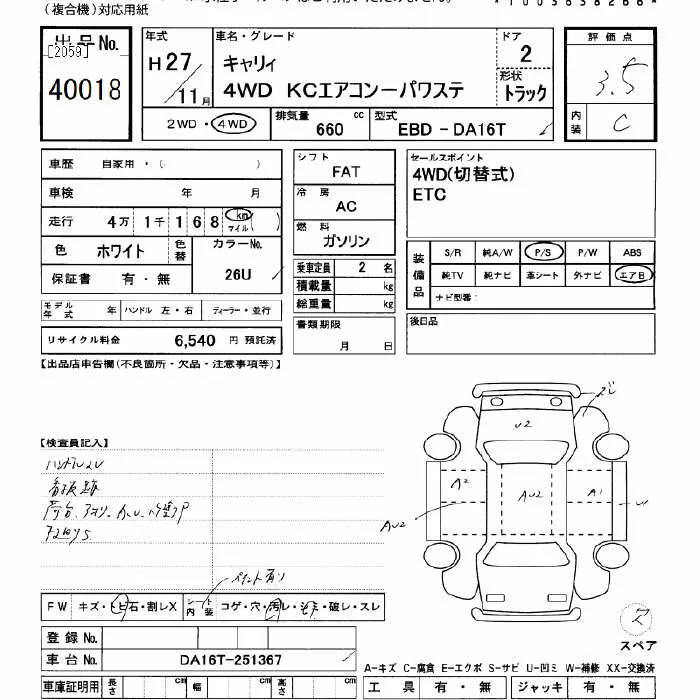 （複合機）対応用紙
出品No.
[2059]
40018
年式
H27
11月
車名・グレード
キャリィ
4WD KCエアコン－パワステ
ドア
2
形状
トラック
評価点
3.5
内装
C
2WD・4WD
排気量
660 cc
型式
EBD－DA16T
車歴 自家用・（ ）
車検 年 月
走行 4万 1千 1 6 8 km マイル（ ）
色 ホワイト
色替
カラーNo.
26U
保証書 有・無
モデル年式 年
ハンドル 左・右
ディーラー・並行
リサイクル料金 6,540 円 預託済
シフト
FAT
冷房
AC
燃料
ガソリン
乗車定員 2 名
積載量 kg
総重量 kg
書類期限
月 日
セールスポイント
4WD(切替式)
ETC
装備品
S/R 純A/W P/S P/W ABS
純TV 純ナビ 革シート 外ナビ エアB
ナビ型番：
後日品
【出品店申告欄(不良箇所・欠品・注意事項等)】
【検査員記入】
ペイント有り
FW キズ・ヒビ石・割レX
シート内装 コゲ・穴・汚レ・シミ・破レ・スレ
登録No.
車台No. DA16T-251367
車庫証明用 長さ cm 幅 cm 高さ cm
U2
A2
AU2
A1
U
AU2
スペア
A-キズ C-腐食 E-エクボ S-サビ U-凹ミ W-補修 XX-交換済
工具 有・無 ジャッキ 有・無